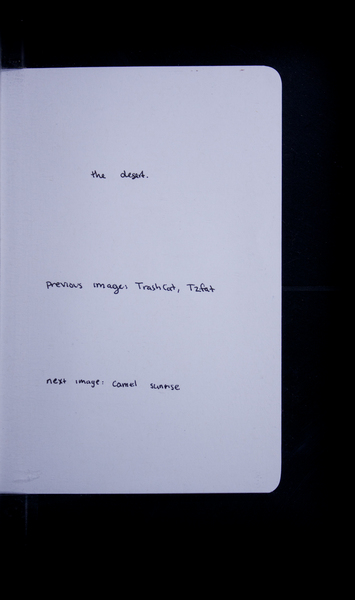 the desert.
previous image: Trash Cat, Tzfat
next image: Camel sunrise